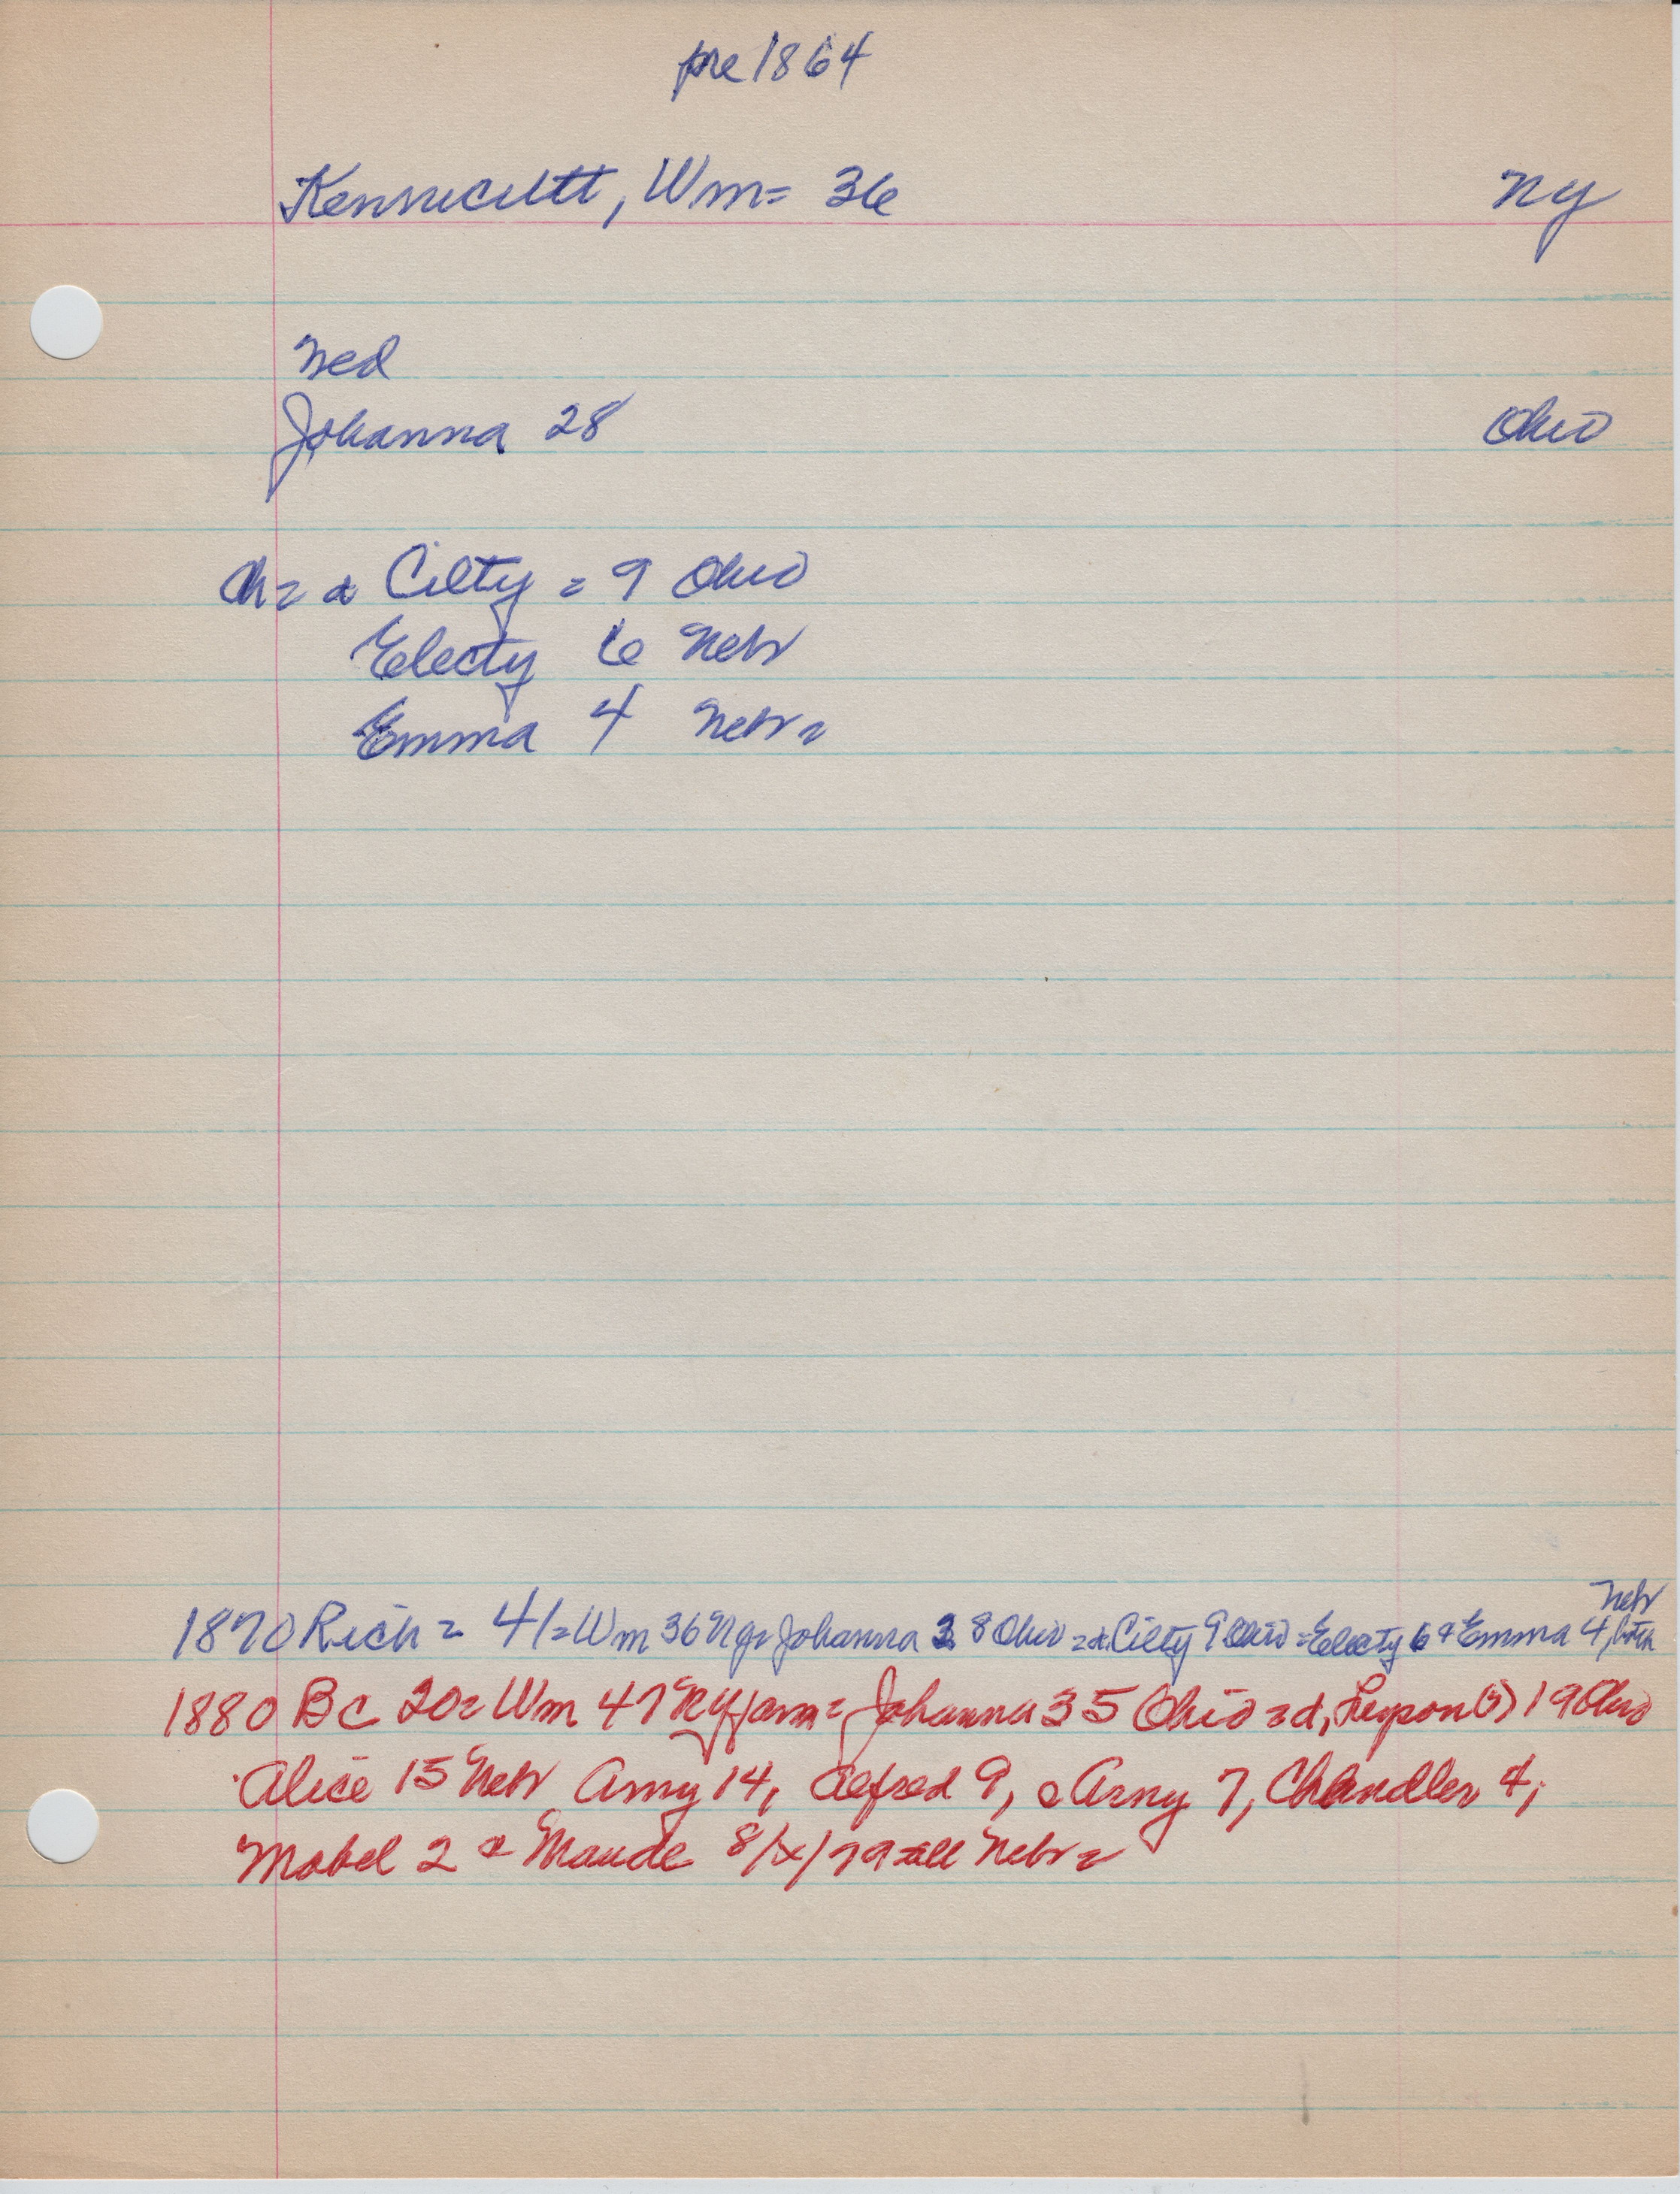 pre 1864
Kennicutt, Wm = 36 NY
Ned
Johanna 28 Ohio
Ch = d Cilty = 9 Ohio
Electy 6 Nebr
Emma 4 Nebr =
Nebr
1870 Rich = 41 = Wm 36 NY = Johanna 28 Ohio = d. Cilty 9 Ohio = Electy 6 & Emma 4, both
1880 BC 20 = Wm 47 NY farm = Johanna 35 Ohio = d, (?) 19 Ohio
Alice 15 Nebr Amy 14, Alfred 9, Arny 7, Chandler 4,
Mabel 2 & Maude 8/x/79 all Nebr =